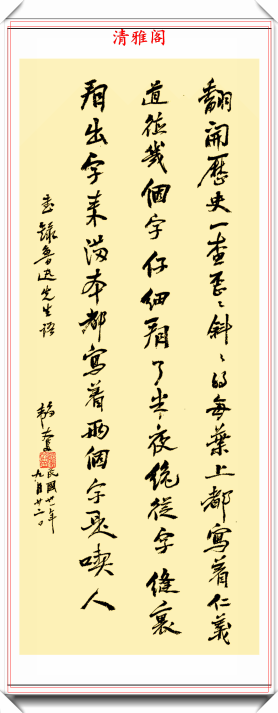 清雅阁
翻開歷史一查歪〻斜〻的每葉上都寫着仁義
道德幾個字仔細看了半夜纔從字縫裏
看出字来滿本都寫着兩個字是喫人
書錄魯迅先生语
民國廿一年
九月廿二日